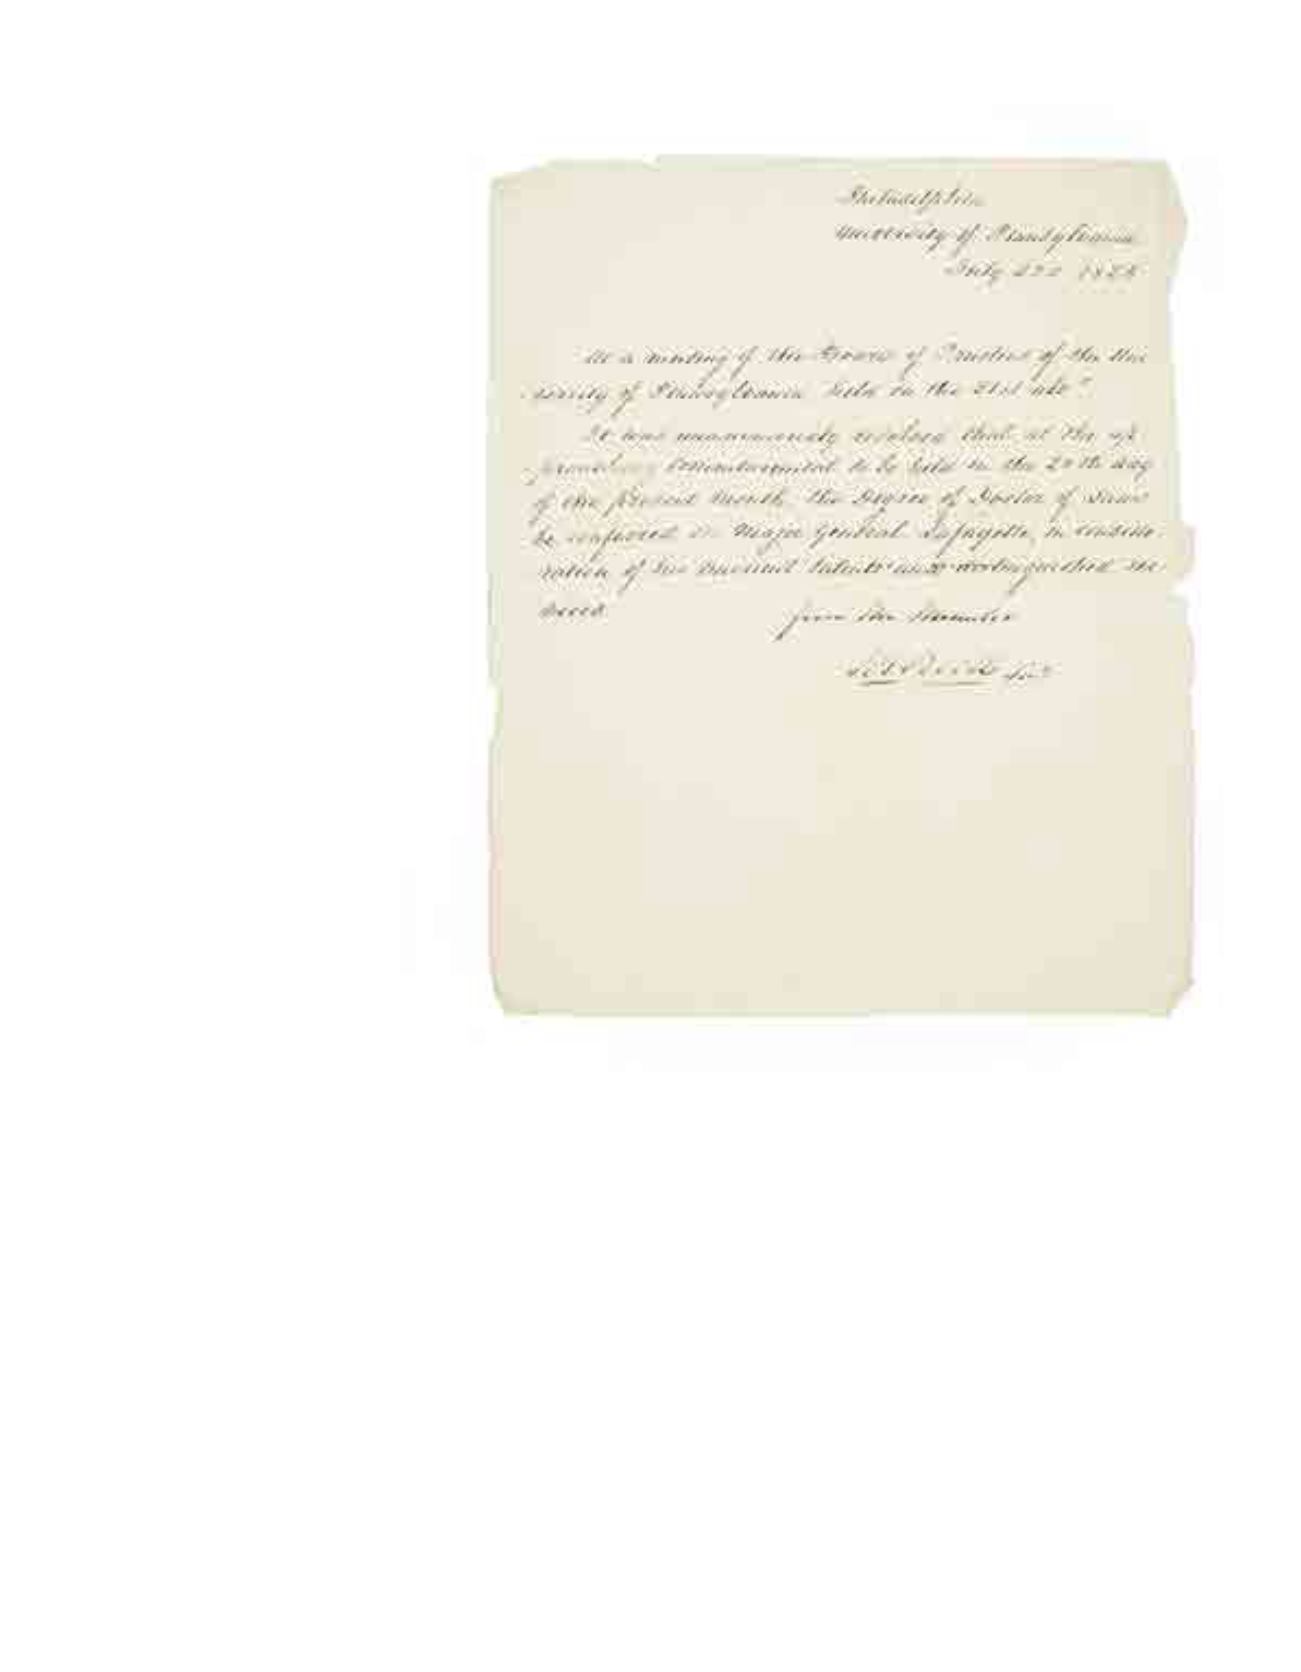 Philadelphia
University of Pennsylvania
July
At a meeting of the Board of Trustees of the Uni
versity of Pennsylvania held on the 21st
It was unanimously resolved that at the ap
proaching Commencement to be held on the day
of the present month, the Degree of Doctor of Laws
be conferred on Major General Lafayette, in conside
ration of his talents and distinguished ser
vices
from the Minutes